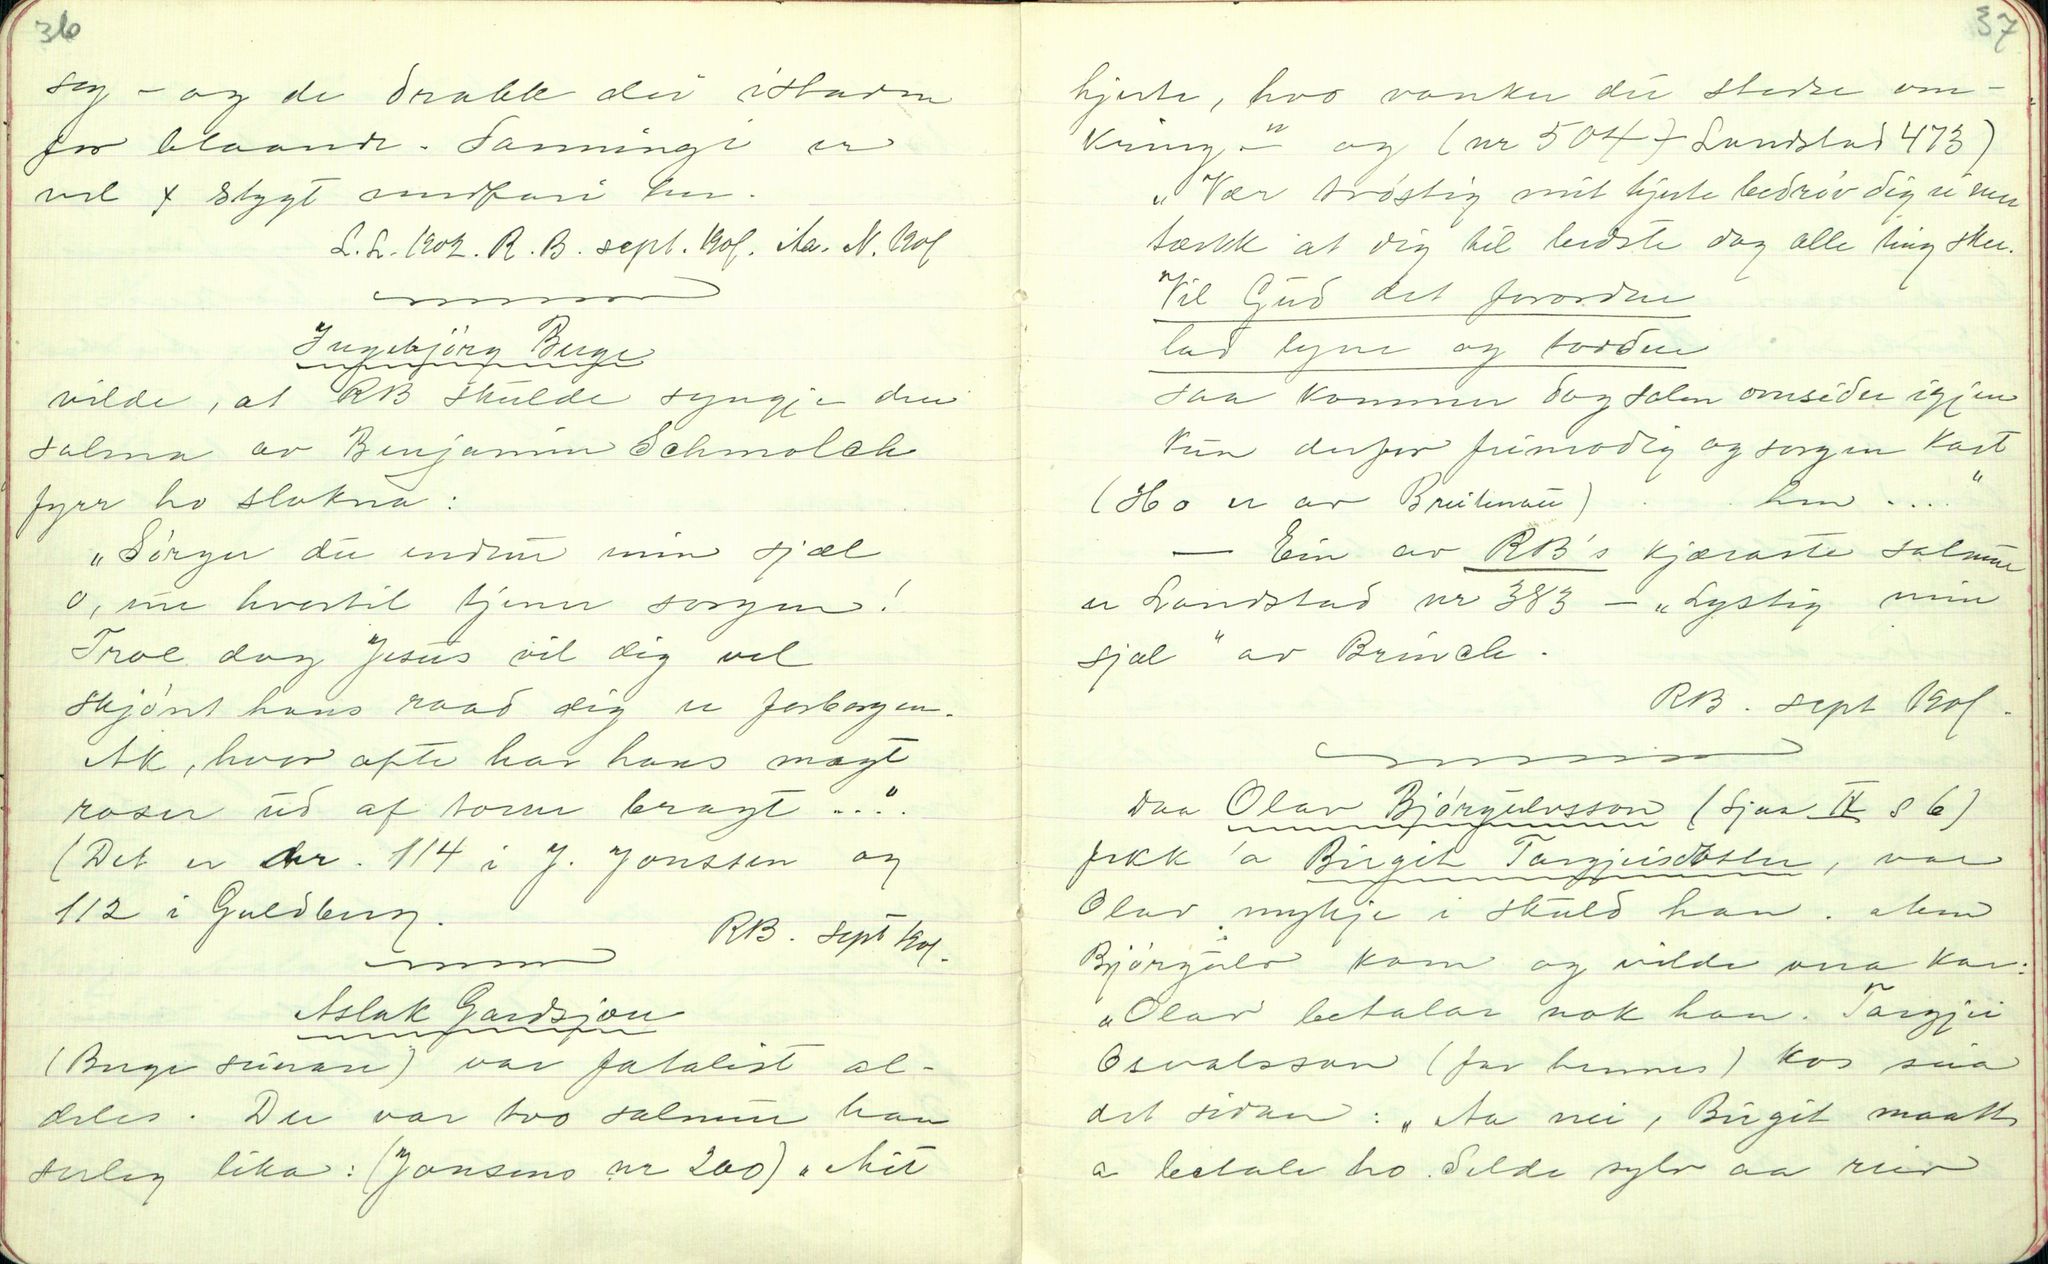 36
seg – og de drakk dei istaden
for blaande. Sanningi er
vel x stygt medfari her.
L.L. 1902. R.B. sept. 1901. Aa. N. 1901
Ingebjörg Berge
vilde, at RB skulde syngje den
salma av Benjamin Schmolck
fyrr ho slokna:
„Sörger du endnu min sjæl
o, nu hvortil tjener sorgen!
Troe dog Jesus vil dig vel
skjönt hans raad dig er forborgen.
Ak, hvor ofte har hans magt
roser ud af torne bragt ...“
(Det er nr. 114 i J. Jonssen og
112 i Guldberg.
RB. sept 1901.
Aslak Gardsjou
(Berge sunare) var fatalist al-
deles. Der var two salmur han
serleg lika: (Jonsens nr 200) „Mit
37
hjerte, hvo vanker du stedse om-
kring –“ og (nr 504 f Landstad 473)
„Vær tröstig mit hjerte bedröv dig ei mer
tænk at dig til bedste dog alle ting sker.
Vil Gud det forordne
lad lyne og tordne
saa kommer dog solen omsider igjen
Kun derfor frimodig og sorgen kast
(Ho er av Breitenau) hen ....“
— Ein av RB's kjæraste salmur
er Landstad nr 383 – „Lystig min
sjæl“ av Brinch.
RB. sept 1901.
Daa Olav Björgulvsson (sjaa II s 6)
fekk 'a Birgit Targjeisdotter, var
Olav mykje i skuld han. Men
Björgulv kom og vilde vera kar:
„Olav betalar nok han. Targjei
Osvalsson (far hennes) kos seia
det sidan: „Aa nei, Birgit maatte
a betale ho. Selde sylv aa reiv